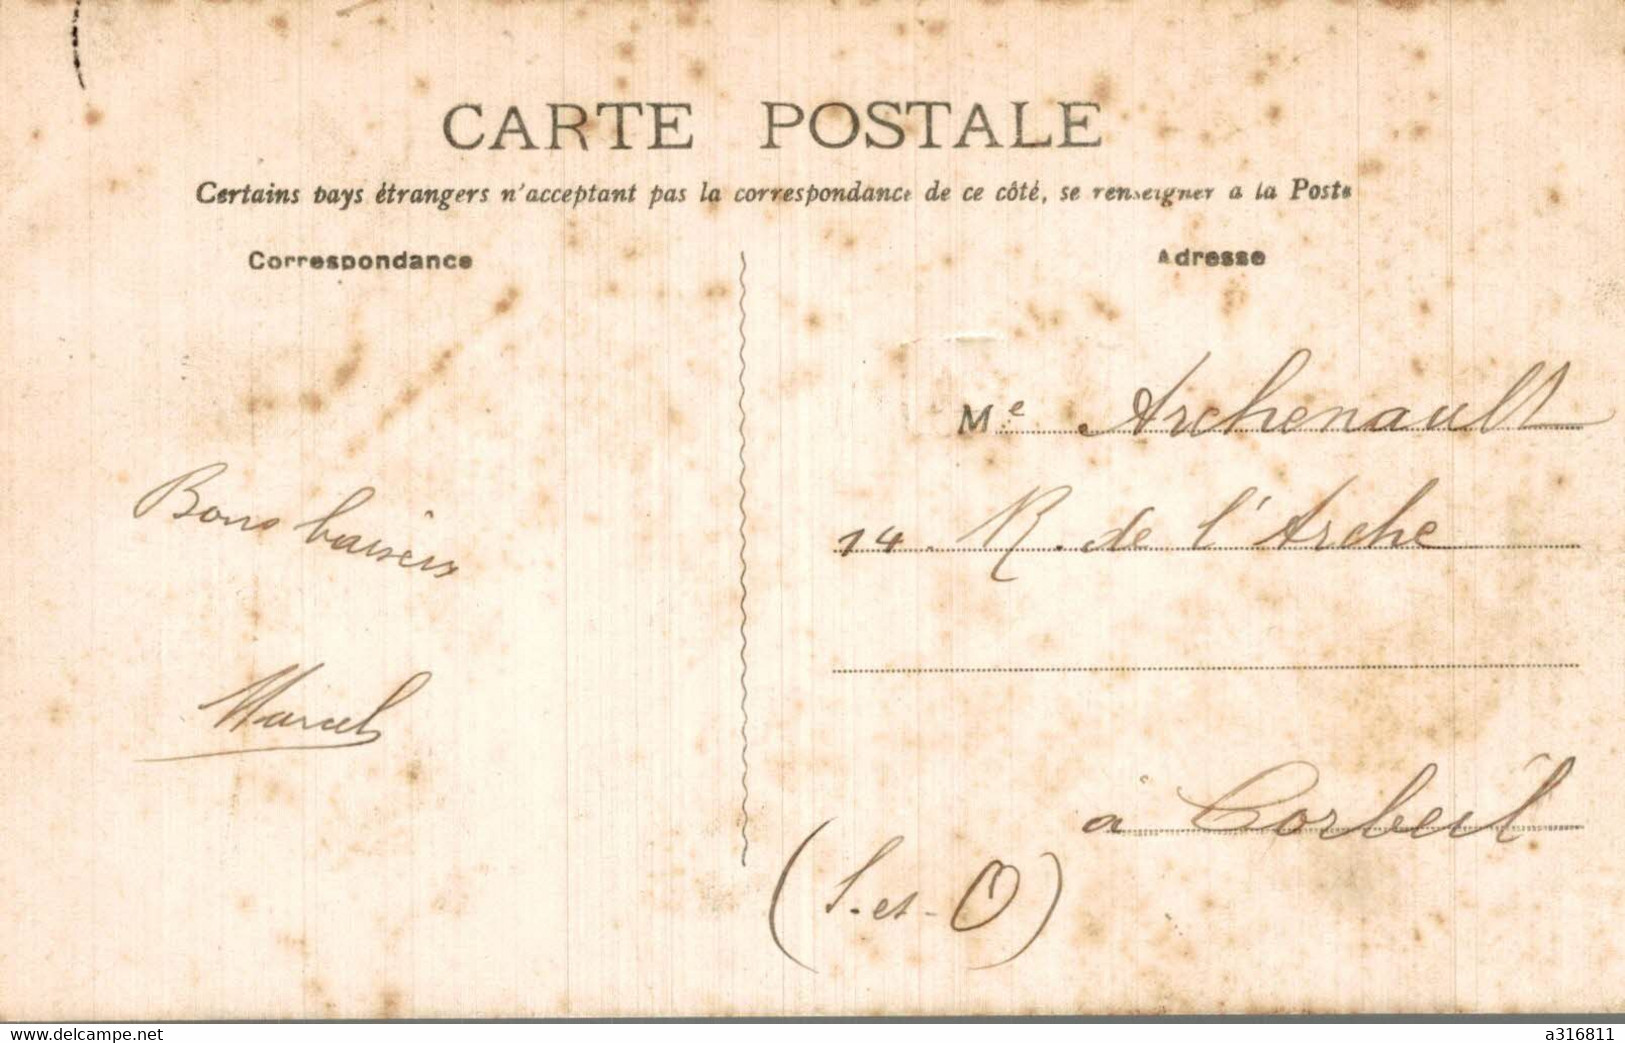 CARTE POSTALE
Certains pays étrangers n'acceptant pas la correspondance de ce côté, se renseigner a la Poste
Correspondance
Adresse
Bons baisers
Marcel
Me Archenault
14. R. de l'Arche
à Corbeil
(S.-et-O)
www.delcampe.net
a316811